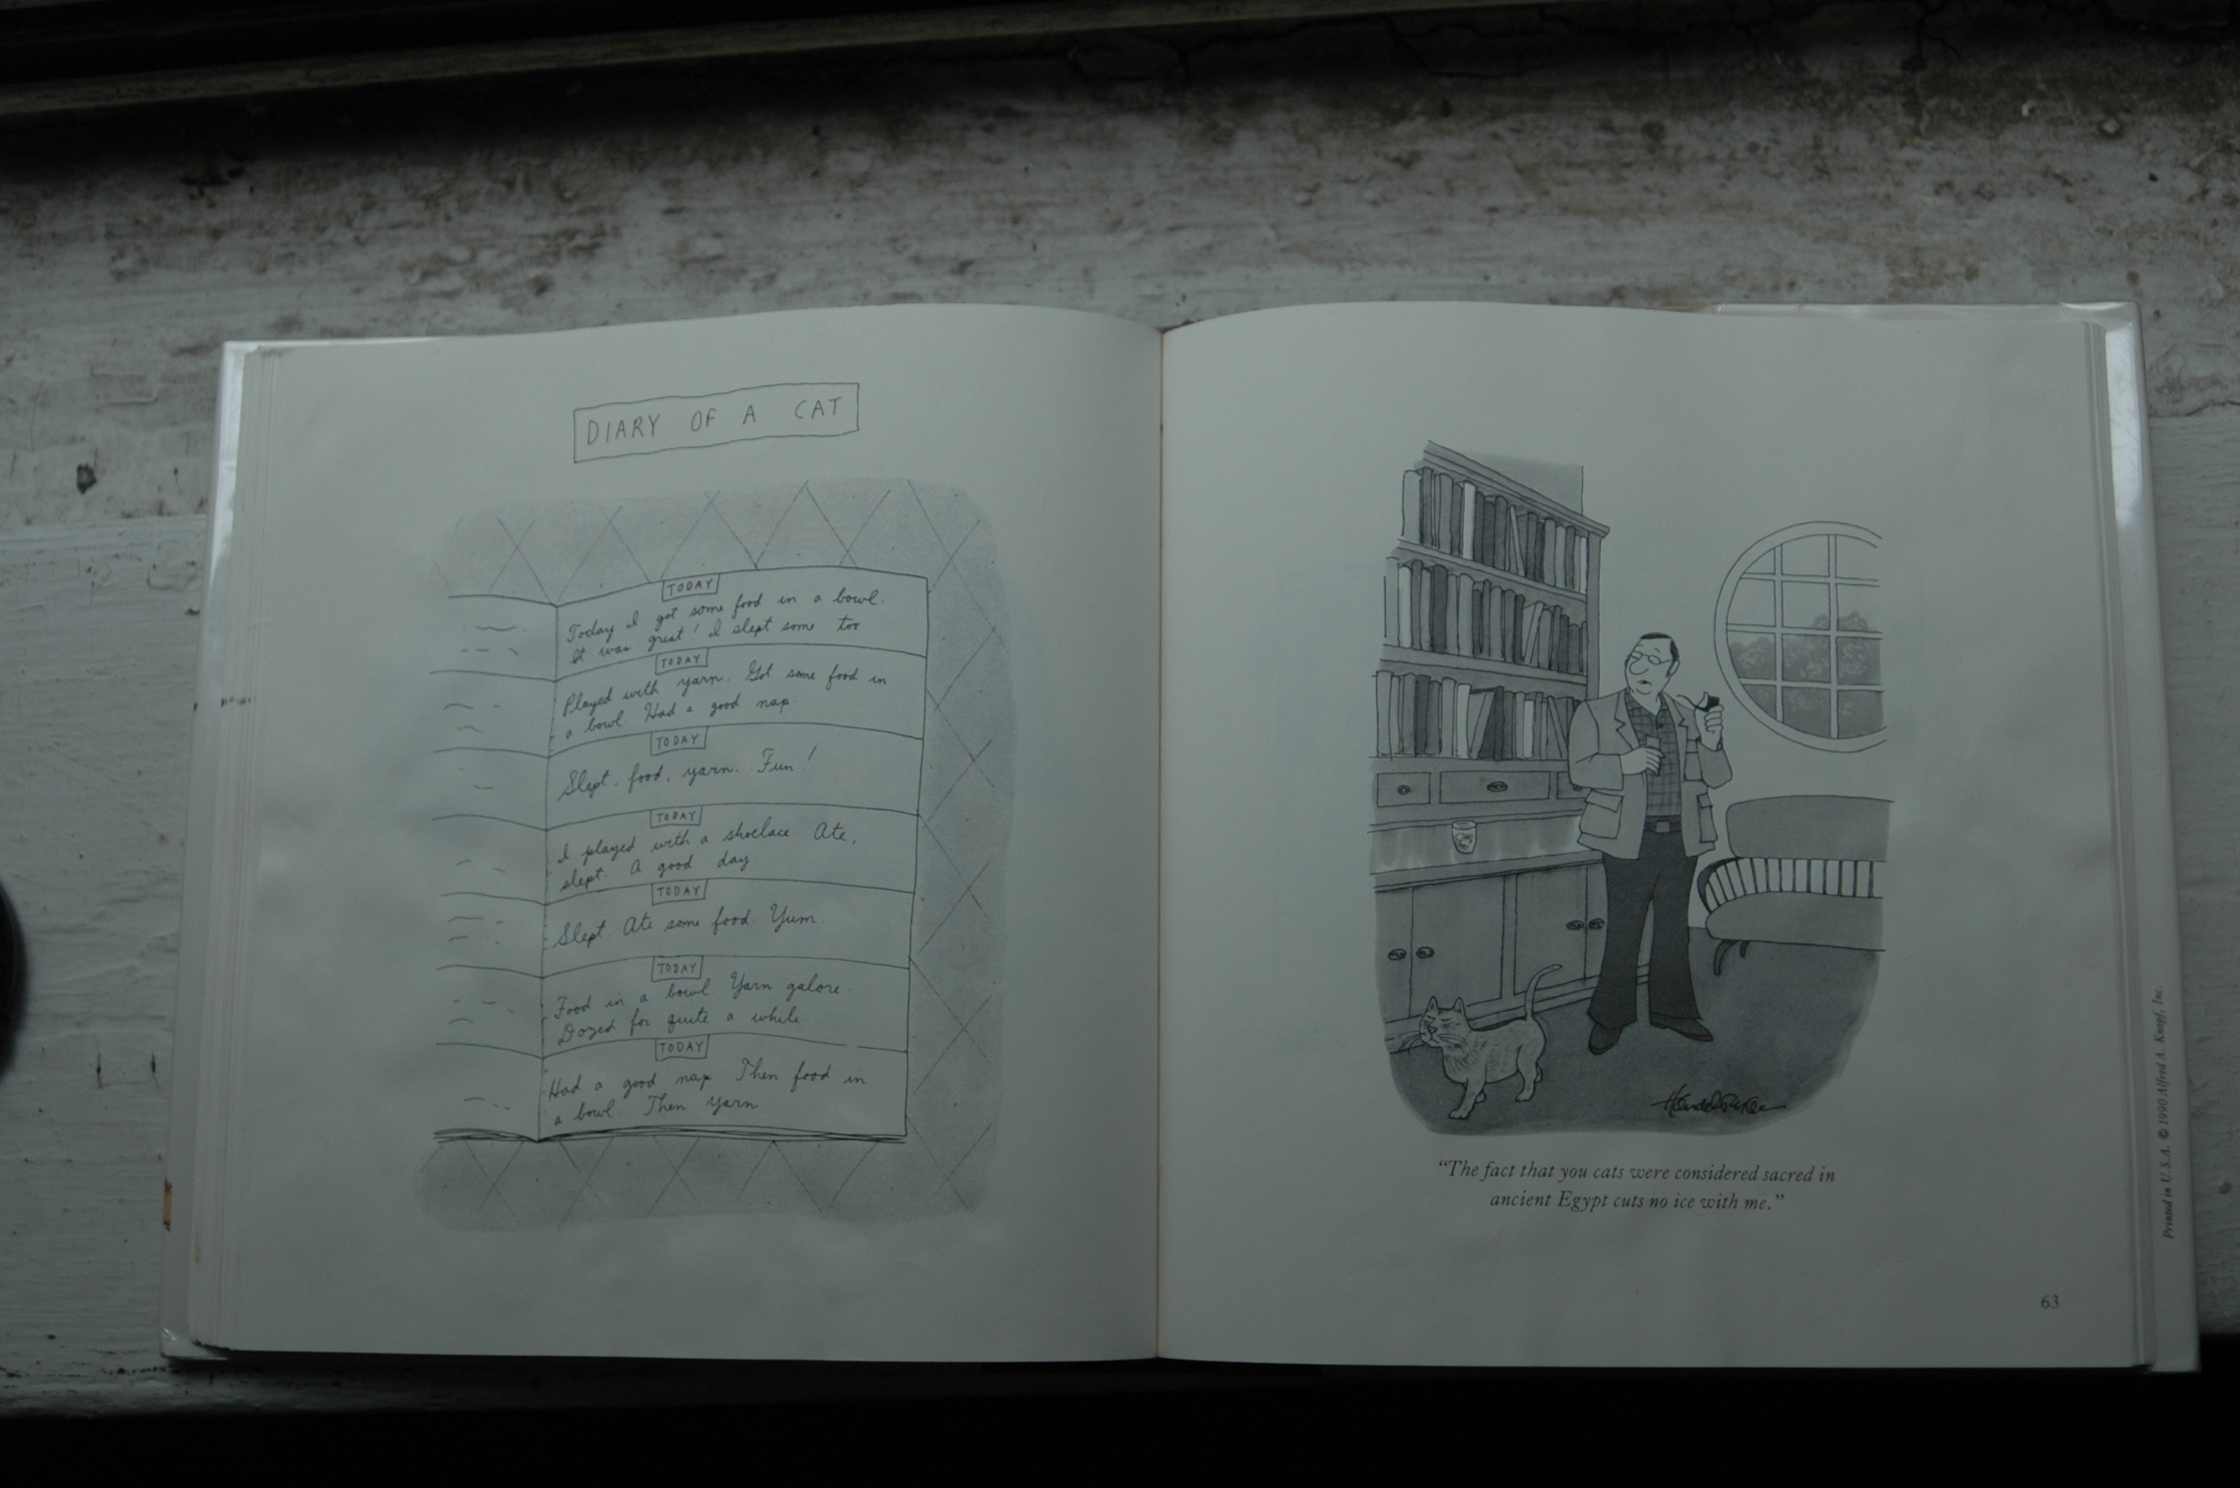 DIARY OF A CAT
TODAY
Today I got some food in a bowl.
It was great! I slept some too.
TODAY
Played with yarn. Got some food in
a bowl. Had a good nap.
TODAY
Slept, food, yarn. Fun!
TODAY
I played with a shoelace. Ate,
slept. A good day.
TODAY
Slept. Ate some food. Yum.
TODAY
Food in a bowl. Yarn galore.
Dozed for quite a while.
TODAY
Had a good nap. Then food in
a bowl. Then yarn.
“The fact that you cats were considered sacred in
ancient Egypt cuts no ice with me.”
63
Printed in U.S.A. © 1990 Alfred A. Knopf, Inc.